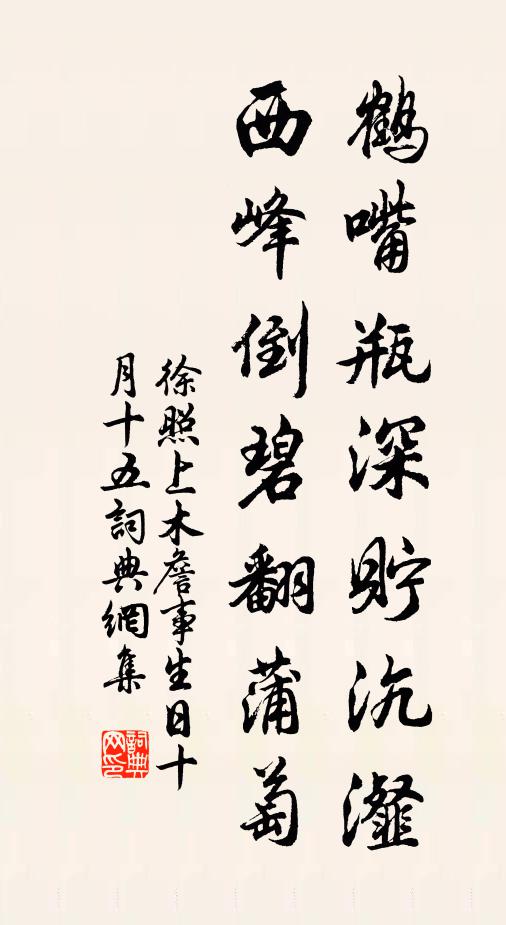 鶴嘴瓶深貯沆瀣
西峰倒碧翻蒲萄
徐照上木詹事生日十
月十五詞典網集
詞典
網印